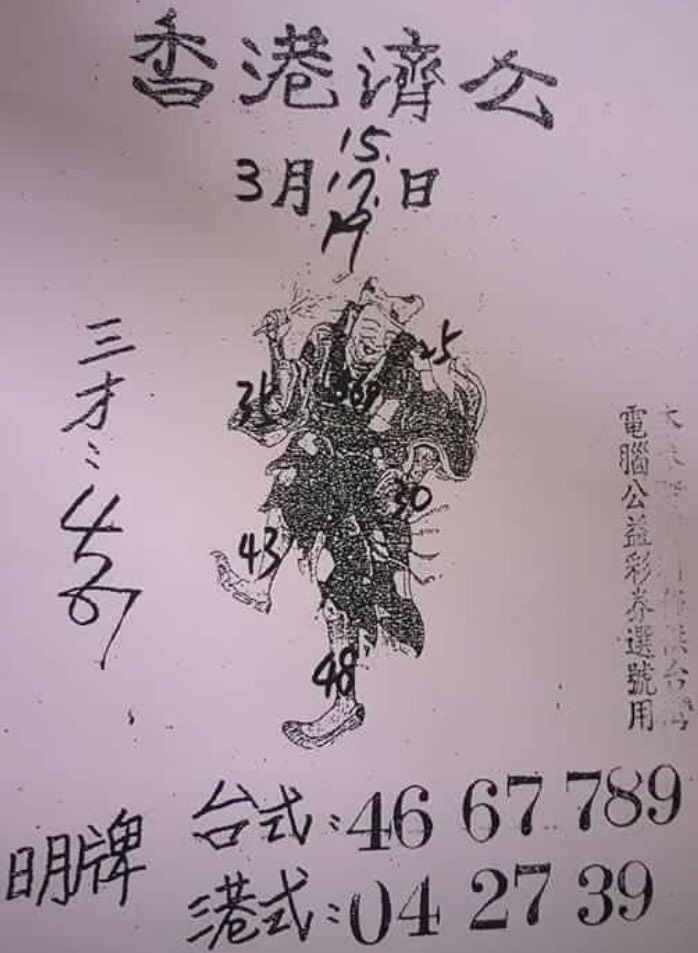 香港濟公
15.
3月17.日
19
三才:
4
6
7
25
35
369
30
43
48
電腦公益彩券選號用
明牌
台式:46 67 789
港式:04 27 39